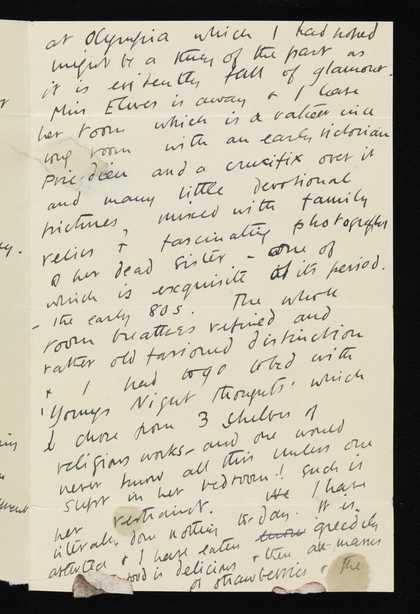 at Olympia which I had hoped
might be a thing of the past as
it is evidently full of glamour.
Miss Elwes is away & I have
her room which is a rather nice
long room with an early Victorian
Prie-dieu and a crucifix over it
and many little devotional
pictures, mixed with family
relics & fascinating photographs
of her dead sister - one of
which is exquisite of its period.
- The early 80s. The whole
room breathes refined and
rather old fashioned distinction
& I had to go to bed with
'Youngs Night Thoughts' which
I chose from 3 shelves of
religious works - and one would
never know all this unless one
slept in her bedroom! Such is
her restraint. I have
literally done nothing to day. It is
& I have eaten greedily
food is delicious & then
of strawberries & the